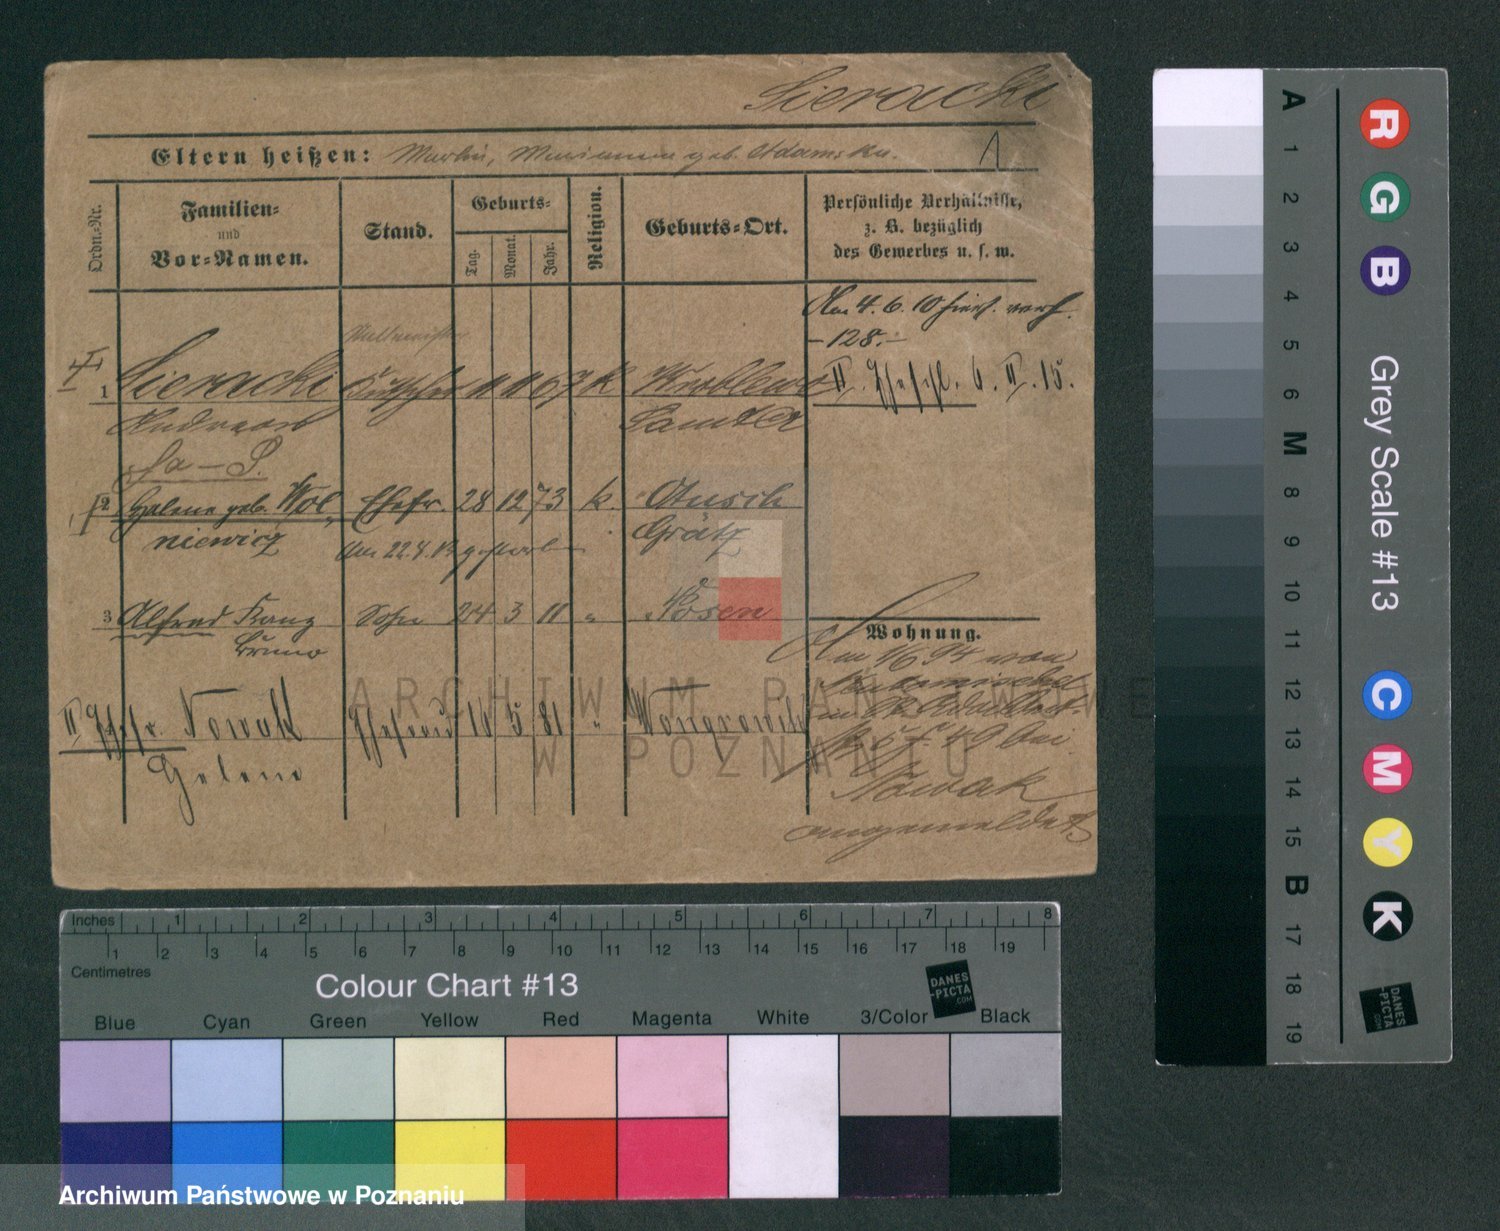 Sieracki
Eltern heißen: Martin, Marianna geb. Adamska.
Ordn.-Nr.
Familien-
und
Vor-Namen.
Stand.
Geburts-
Tag.
Monat.
Jahr.
Religion.
Geburts-Ort.
Persönliche Verhältnisse,
z. B. bezüglich
des Gewerbes u. s. w.
Am 4. 6. 10 hier verh.
-128.-
1 Sieracki 11 11 67 K
II. Ehefr. 6. II. 15.
Andreas
Samter
2 Helene geb. Wol- Ehefr. 28 12 73 k. Otusch
niewicz
Grätz
Am 22. 4. 13 gestorben
3 Alfred Franz Sohn 24 3 11 " Posen
Bruno
Wohnung.
Am 1/6 94 von
II Ehefr. Nowak Ehefrau 16 5 81 " Wongrowitz
Helene
49 bei
Nowak
angemeldet
ARCHIWUM PAŃSTWOWE
W POZNANIU
Inches 1 2 3 4 5 6 7 8
1 2 3 4 5 6 7 8 9 10 11 12 13 14 15 16 17 18 19
Centimetres
Colour Chart #13
DANES
-PICTA
.COM
Blue Cyan Green Yellow Red Magenta White 3/Color Black
Archiwum Państwowe w Poznaniu
A 1 2 3 4 5 6 M 8 9 10 11 12 13 14 15 B 17 18 19
R G B
Grey Scale #13
C M Y K
DANES
-PICTA
.COM